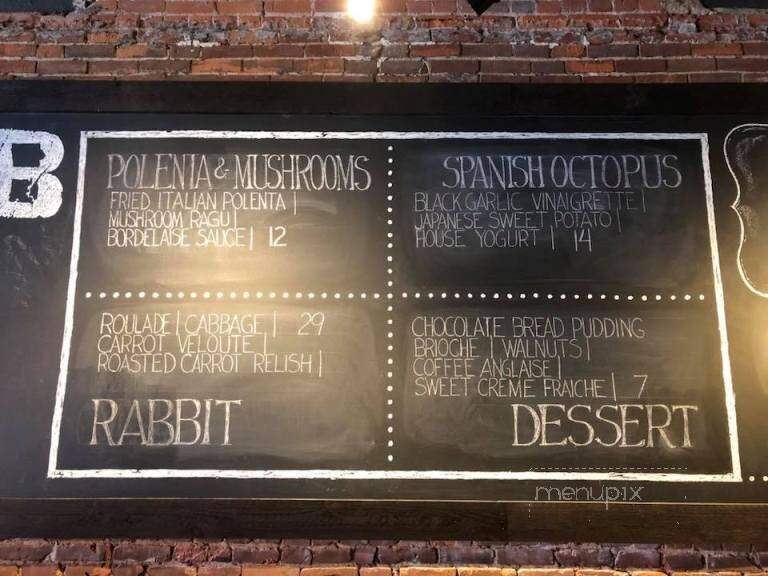 B
POLENTA & MUSHROOMS
FRIED ITALIAN POLENTA |
MUSHROOM RAGU |
BORDELAISE SAUCE | 12
SPANISH OCTOPUS
BLACK GARLIC VINAIGRETTE |
JAPANESE SWEET POTATO |
HOUSE YOGURT | 14
ROULADE | CABBAGE | 29
CARROT VELOUTE |
ROASTED CARROT RELISH |
RABBIT
CHOCOLATE BREAD PUDDING
BRIOCHE | WALNUTS |
COFFEE ANGLAISE |
SWEET CREME FRAICHE | 7
DESSERT
menupix